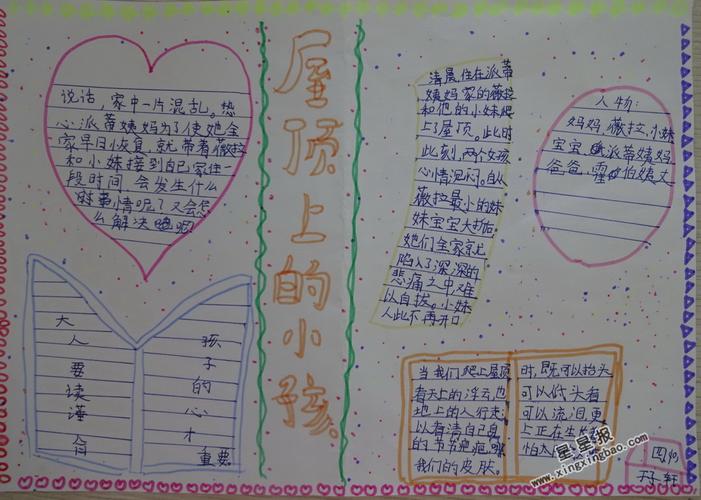 屋顶上的小孩。
清晨住在派蒂
姨妈家的薇拉
和他的小妹爬
上了屋顶。此时
此刻,两个女孩
心情沉闷。自从
薇拉最小的妹
妹宝宝大折后。
她们全家就
陷入了深深的
悲痛之中难
以自拔。小妹
人此不再开口
说话,家中一片混乱。热
心派蒂姨妈为了使她全
家早日恢复,就带着薇拉
和小妹接到自己家住一
段时间,会发生什么
事情呢?又会怎
么解决呢
人物:
妈妈,薇拉,小妹
宝宝,派蒂姨妈
爸爸,霍伯姨丈
大人要读懂
孩子的心才
重要
当我们爬上屋顶
看天上的浮云也
地上的人行走
以看清自己身
的
我们的皮肤。
时,既可以抬头
可以低头看
可以流泪,更
上正在生
怕
四
轩
星星报
www.xingxingbao.com